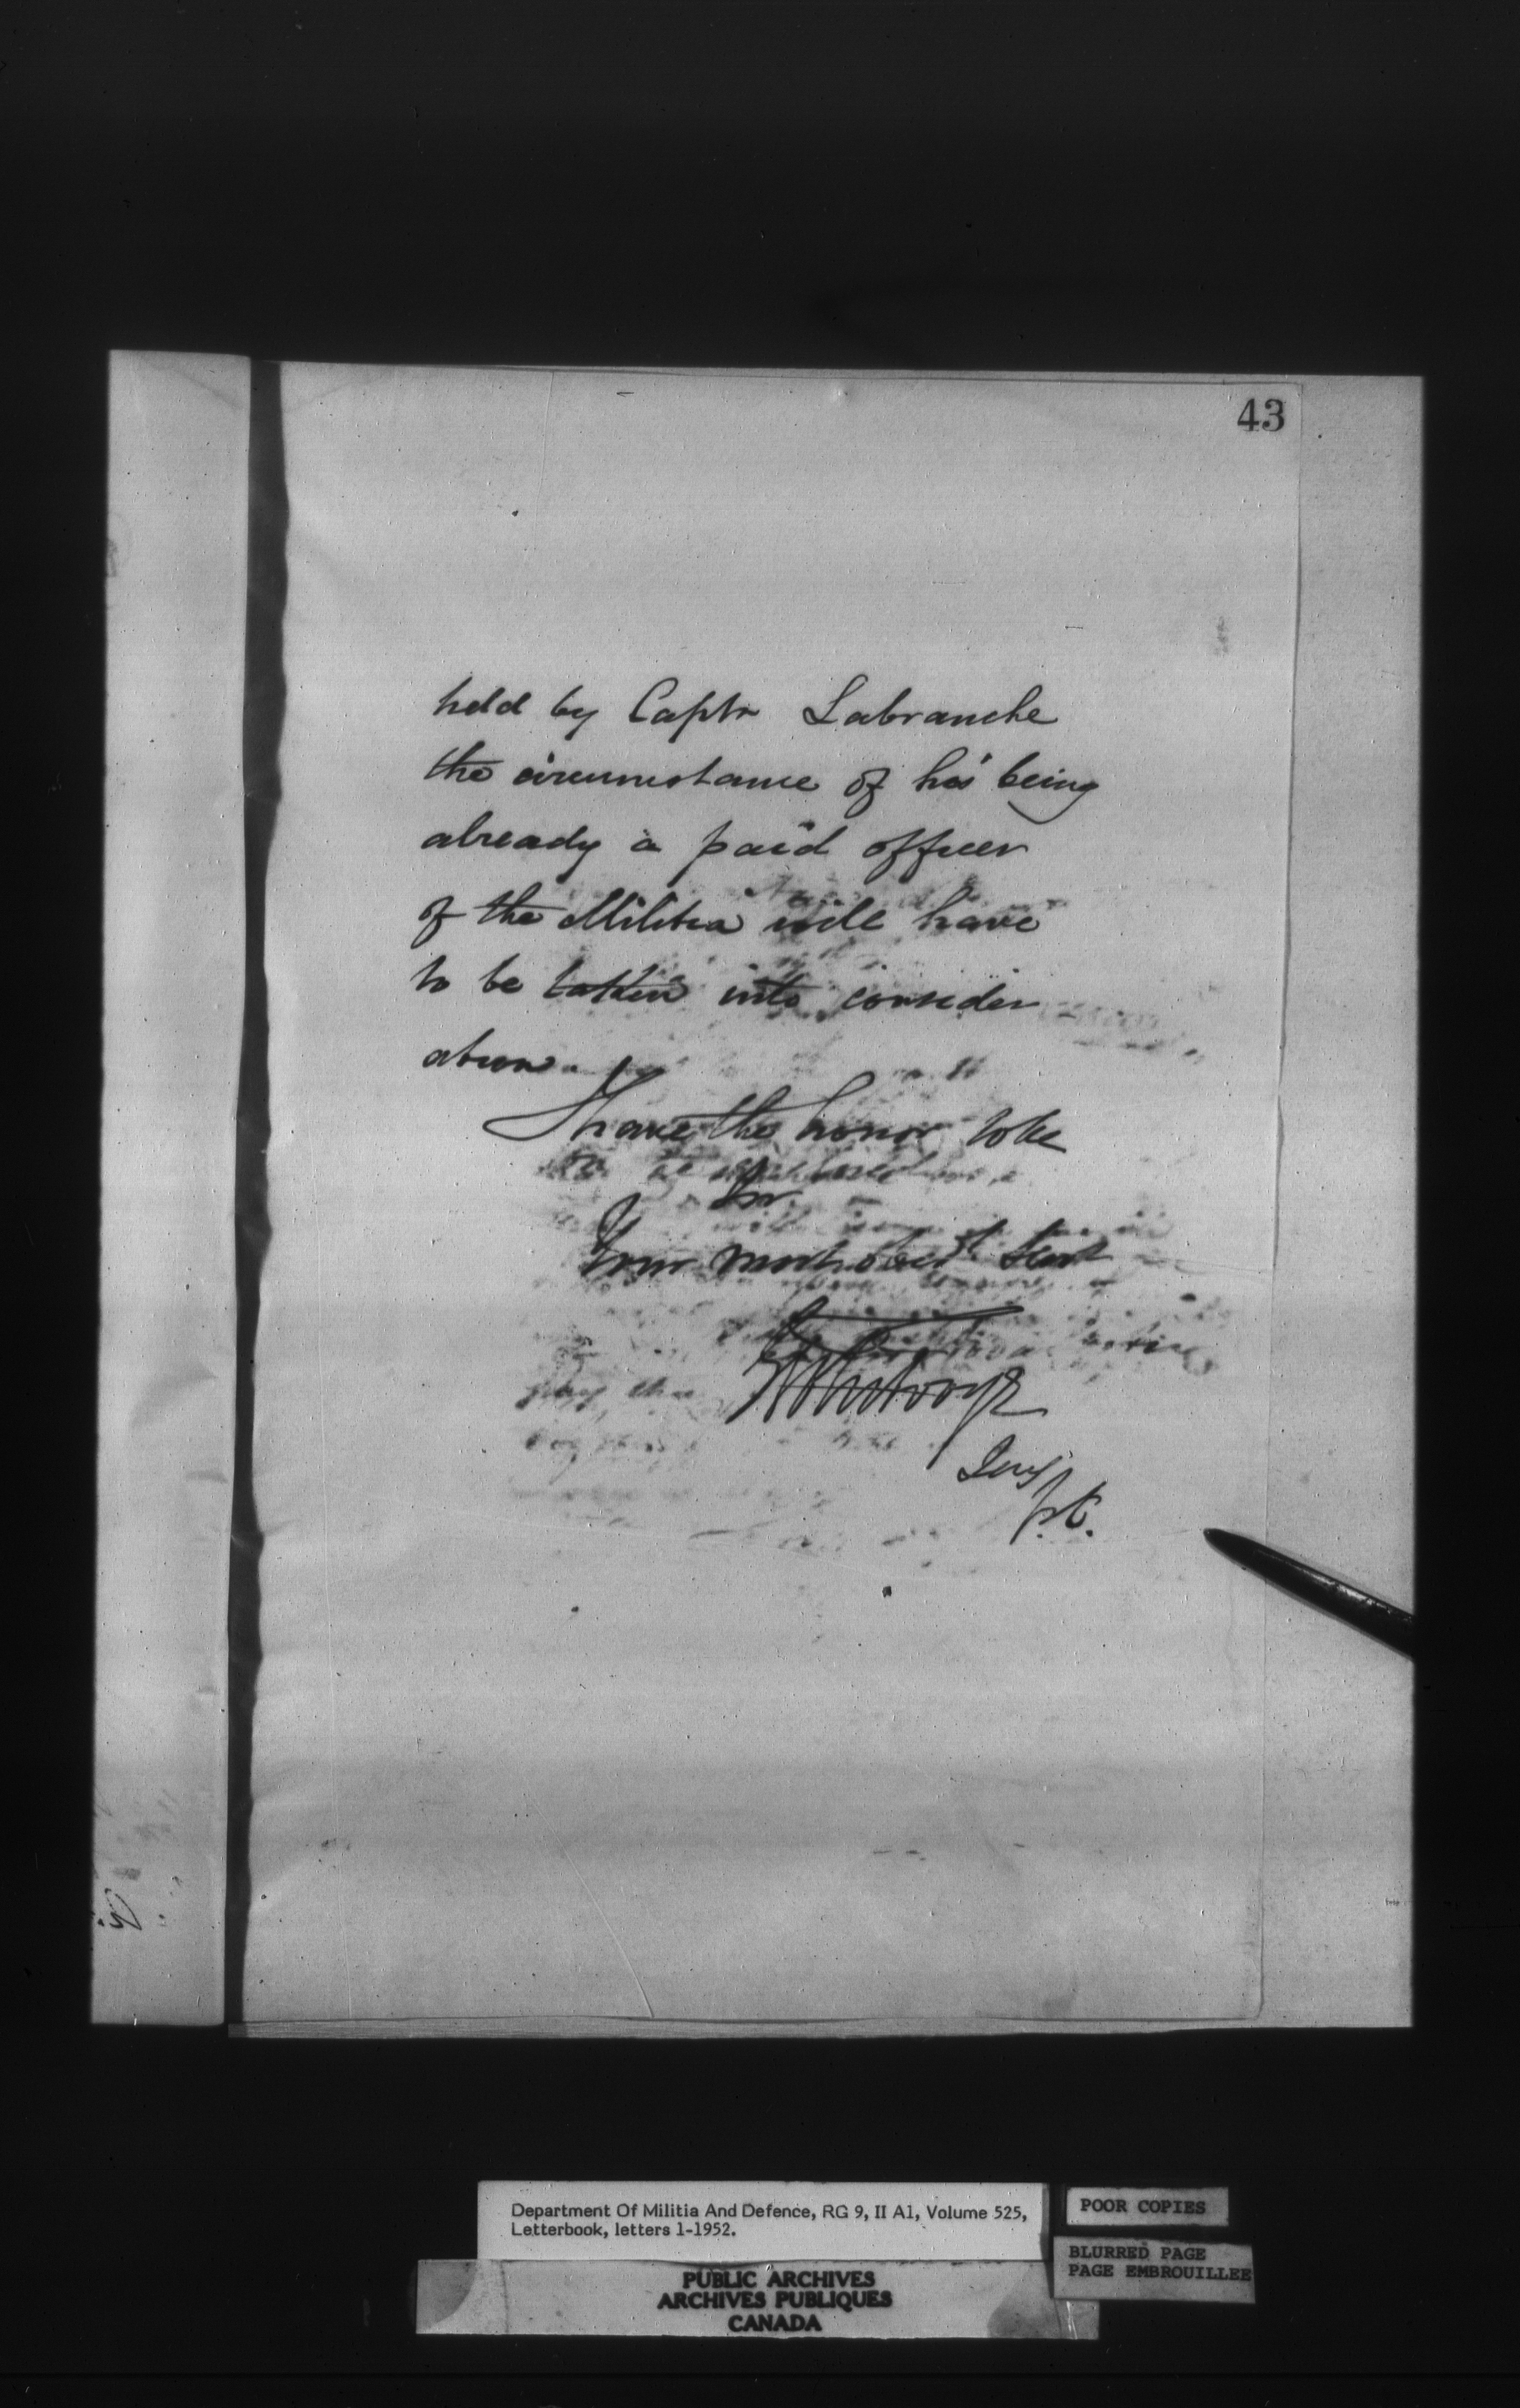 43
held by Captn Labranche
the circumstance of his being
already a paid officer
of the Militia will have
to be taken into consider
ation.
I have the honor to be
Sir
Your most obedt Servt
Department Of Militia And Defence, RG 9, II A1, Volume 525,
Letterbook, letters 1-1952.
POOR COPIES
BLURRED PAGE
PAGE EMBROUILLEE
PUBLIC ARCHIVES
ARCHIVES PUBLIQUES
CANADA